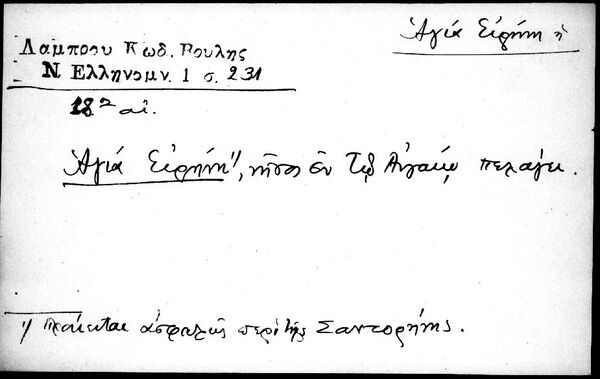 Ἁγία Εἰρήνη ἡ
Λαμπρου Κωδ. Βουλης
Ν Ελληνομν. 1 σ. 231
18ος αἰ.
Ἁγία Εἰρήνη 1/, νῆσος ἐν τῷ Αἰγαίῳ πελάγει.
1/ Πρόκειται ἀσφαλῶς περὶ τῆς Σαντορήνης.